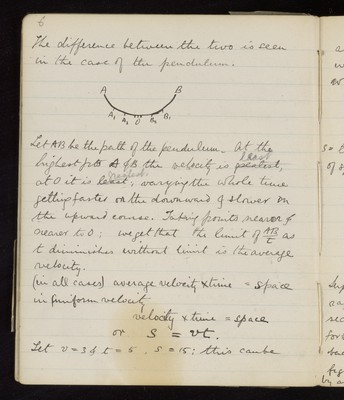 6
The difference between the two is seen
in the case of the pendulum.
A B
A₁ A₂ O B₂ B₁
Let AB be the path of the pendulum. At the
least
highest pts A & B the velocity is greatest,
greatest
at O it is least; varying the whole time
getting faster on the downward & slower on
the upward course. Taking points nearer &
nearer to O; we get that the limit of AB/t as
t diminishes without limit is the average
velocity.
(in all cases) average velocity × time = space
in funiform velocity
velocity × time = space
or S = vt.
Let v = 3 & t = 5, S = 15: this can be